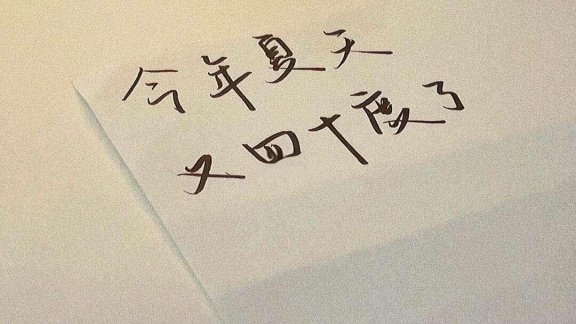 今年夏天
又四十度了